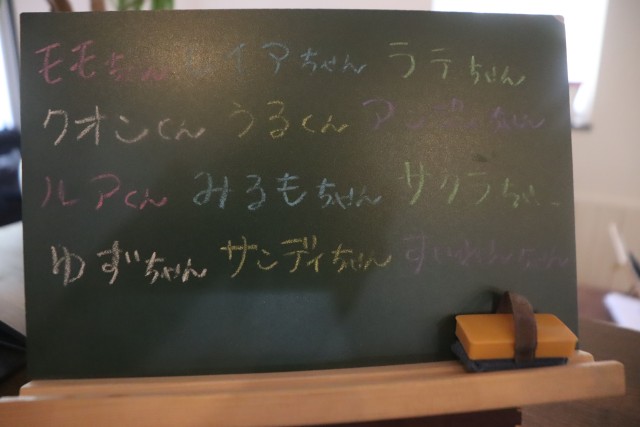 モモちゃん レイアちゃん ラテちゃん
クオンくん うるくん アンディちゃん
ルアくん みるもちゃん サクラちゃん
ゆずちゃん サンディちゃん すいれんちゃん